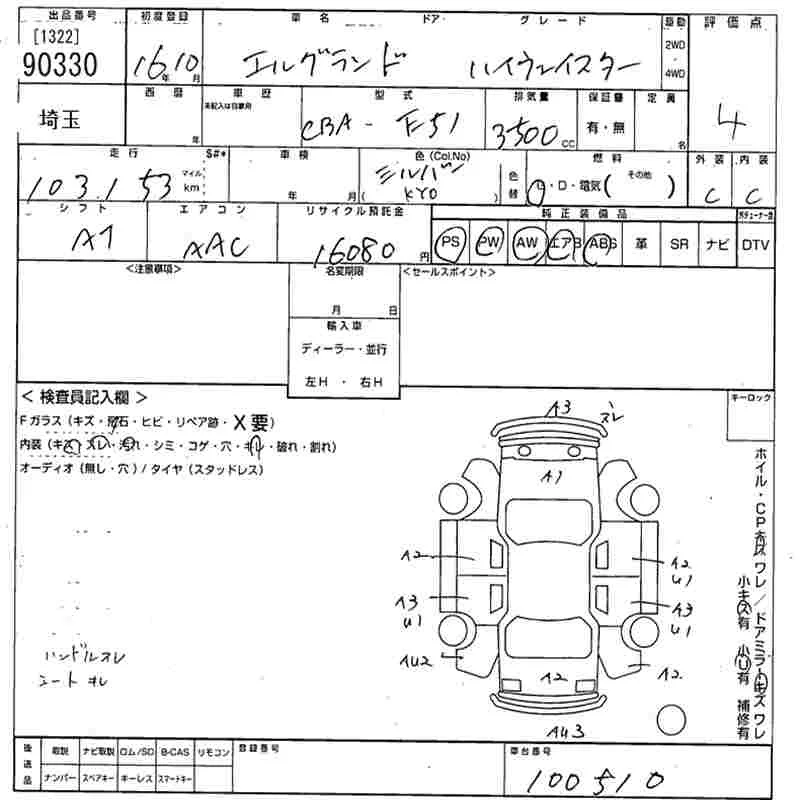 出品番号 初度登録 車名 ドア・ グレード 駆動 評価点
[1322]
90330 16年10月 エルグランド ハイウェイスター 2WD・4WD
埼玉 西暦 年 車歴 未記入は自家用 型式 CBA-E51 排気量 3500cc 保証書 有・無 定員 名 4
走行 103,153 マイル km S#* 車検 年 月 色(Col.No) シルバー ( KY0 ) 色替 燃料 G・D・電気( その他 ) 外装 C 内装 C
シフト AT エアコン AAC リサイクル預託金 16080円 純正装備品 PS PW AW エアB ABS 革 SR ナビ DTV
<注意事項> 名変期限 月 日 <セールスポイント>
輸入車
ディーラー・並行
左H ・ 右H
<検査員記入欄> キーロック
Fガラス(キズ・飛石・ヒビ・リペア跡・X要)
内装(キズ・スレ・汚れ・シミ・コゲ・穴・キレ・破れ・割れ)
オーディオ(無し・穴)/タイヤ(スタッドレス)
A3 スレ
A1
A2 A2 U1
A3 U1 A3 U1
AU2 A2 A2
AU3
ハンドルスレ
シート スレ
ホイル・CPキズ ワレ/ドアミラーキズ ワレ
小キズ有 小U有 補修有
後送品 取説 ナビ取説 ロム/SD B-CAS リモコン 登録番号 車台番号
ナンバー スペアキー キーレス スマートキー 100510